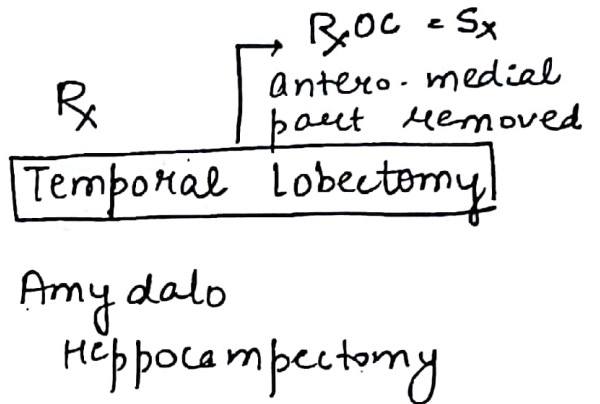 RxOC = Sx
antero-medial
part removed
Rx
Temporal Lobectomy
Amydalo
Heppocampectomy